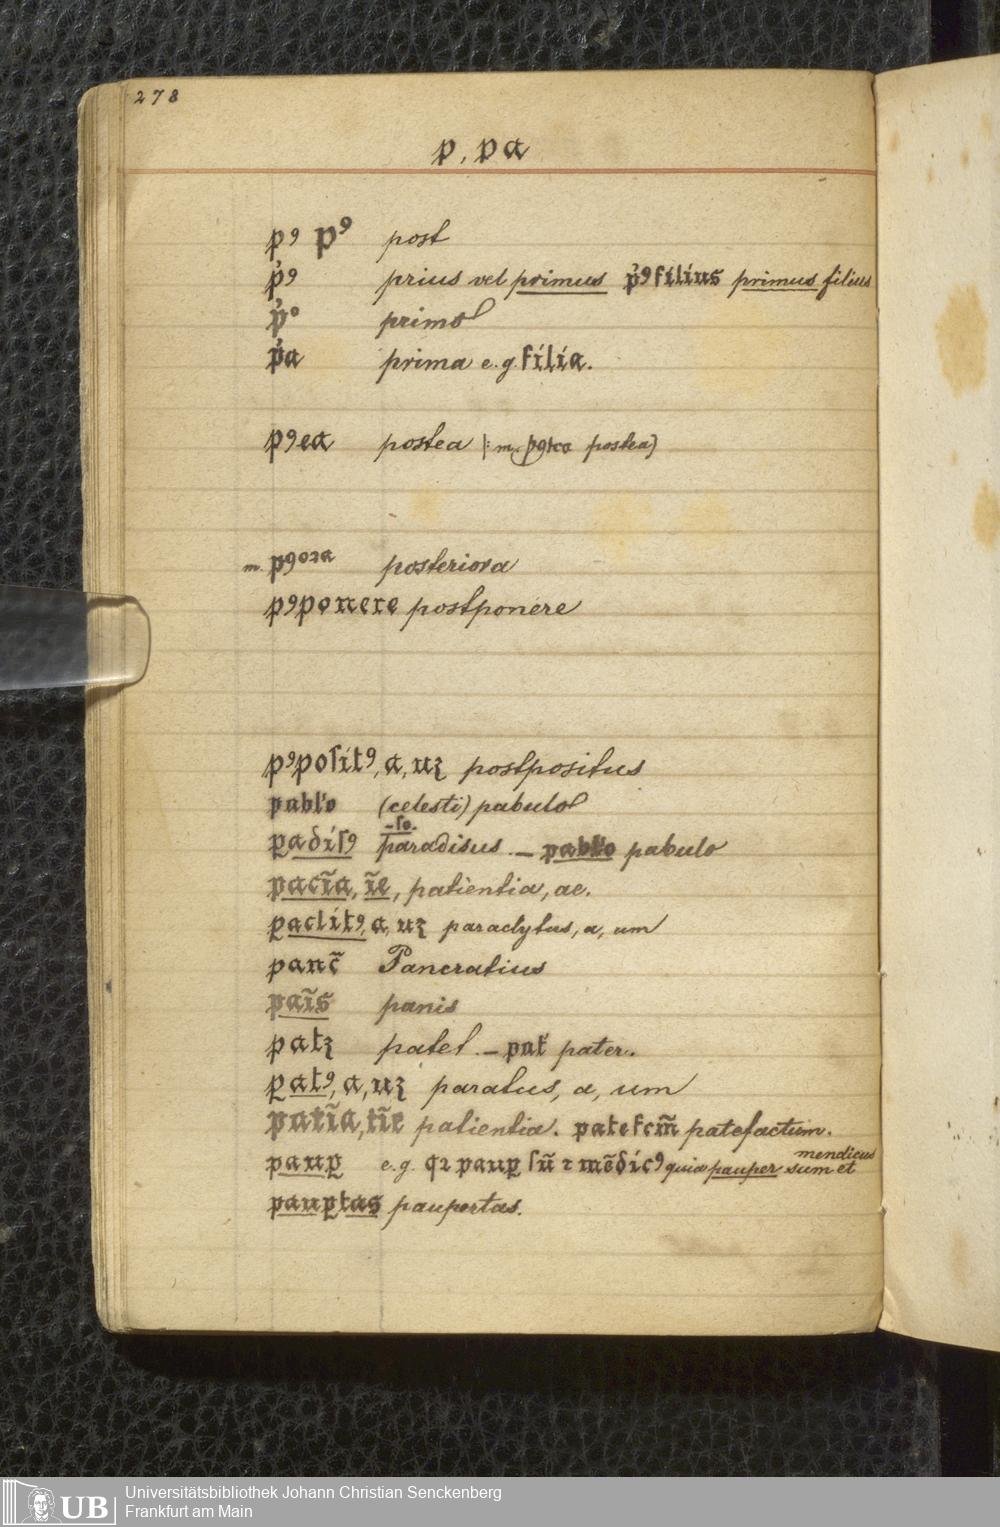 278
p, pa
pꝰ pꝰ post
pꝰ prius vel primus pꝰ filius primus filius
p° primo
pa prima e.g. filia.
pꝰea postea [: m. pꝰtea postea]
m. pꝰora posteriora
pꝰponere postponere
pꝰpositꝰ, a, uʒ postpositus
pablo (celesti) pabulo
-so.
ꝑadisꝰ paradisus. — pablo pabulo
pacĩa, ĩe, patientia, ae.
ꝑaclitꝰ, a, uʒ paraclytus, a, um
panc̃ Pancratius
paĩs panis
patʒ patet. — pat̃ pater.
ꝑatꝰ, a, uʒ paratus, a, um
patĩa, tĩe patientia. patefcm̃ patefactum.
pauꝑ e.g. qꝛ pauꝑ sũ ⁊ mẽdicꝰ quia pauper sum et mendicus
pauꝑtas paupertas.
UB Universitätsbibliothek Johann Christian Senckenberg
Frankfurt am Main